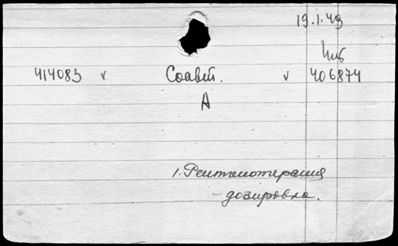 19.1.49
414083 v Соавт. v 406874
А
1. Рентгенотерапия
- дозировка.